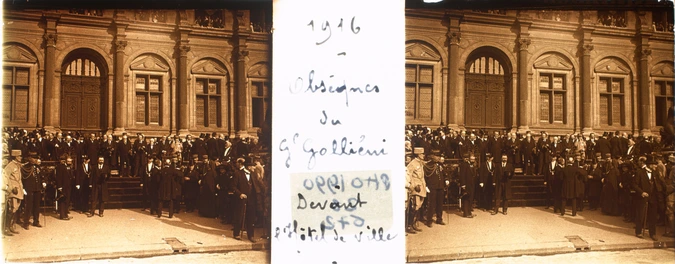 1916
-
Obsèques
du
Gl Galliéni
Devant
l'Hôtel de Ville